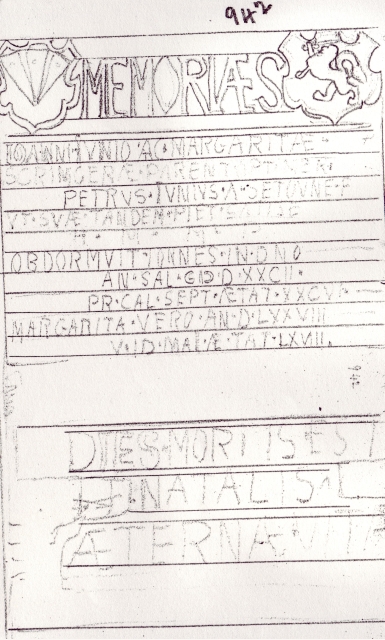 942
MEMORIÆ S
IOANNI·IVNIO·AC·MARGARITAE·
SCRINGERÆ·PARENT·
PETRVS·IVNIVS·A·SETOVNE·F
VT·SVÆ·TANDEM·PIET
OBDORMVIT·IOHNES·IN·DNO
AN·SAL·CIƆ·D·XXCII·
PR·CAL·SEPT·ÆTAT·XXCVI·
MARGARITA·VERO·AN·D·LXXVIII
V·ID·MAI·ÆTAT·LXVIII.
942
DIES·MORTIS EST
NATALIS·
ÆTERNÆ·VITÆ